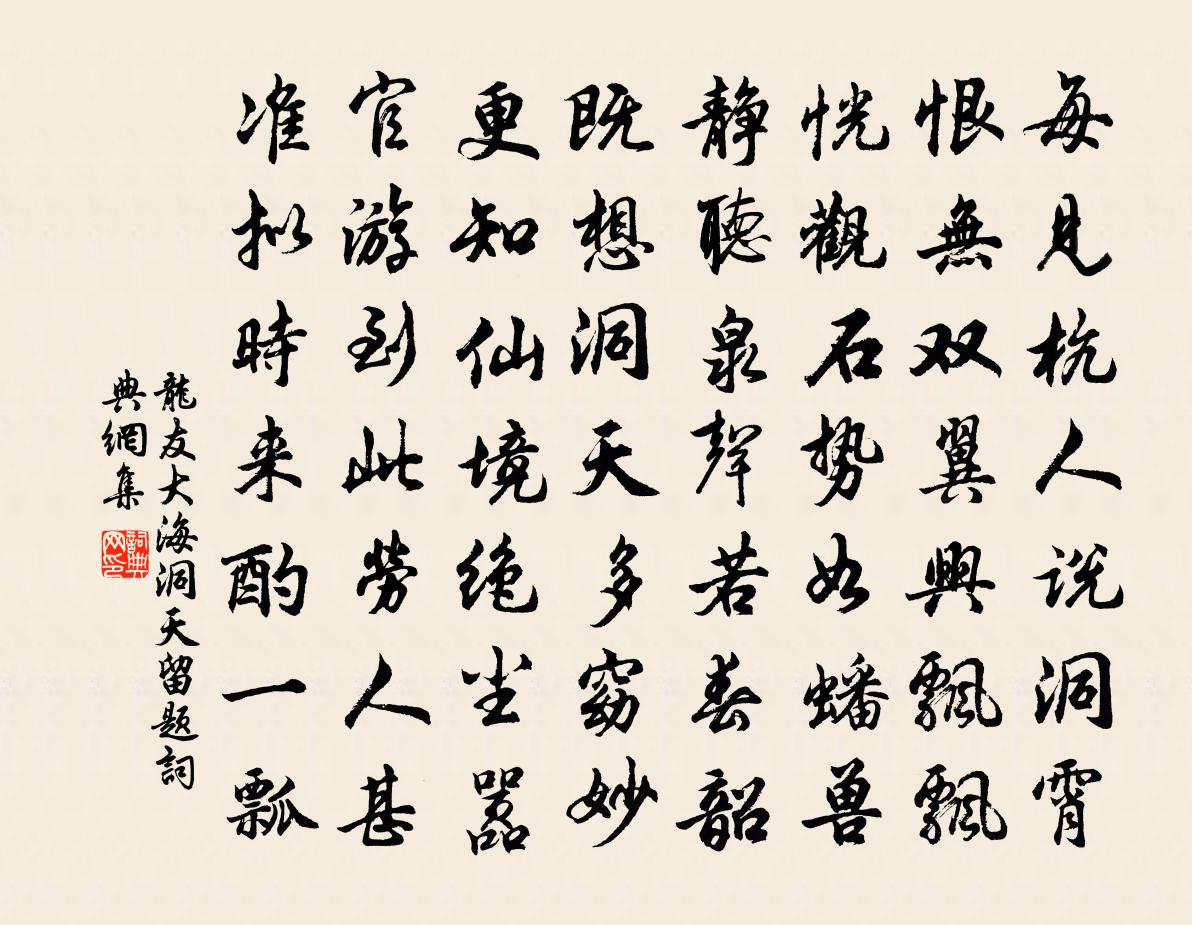 每見杭人说洞霄
恨無双翼興飄飄
恍觀石势如蟠兽
静聽泉聲若奏韶
既想洞天多窈妙
更知仙境绝尘嚣
官游到此勞人甚
准拟時来酌一瓢
龍友大海洞天留题詞
典網集
詞典网印